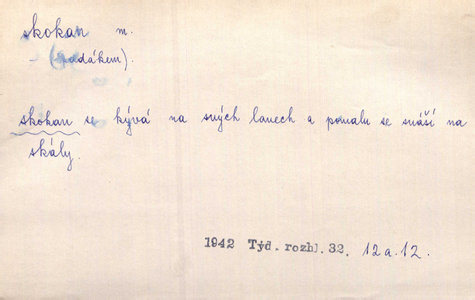 skokan m.
- (padákem).
skokan se kývá na svých lanech a pomalu se snáší na
skály.
1942 Týd. rozhl. 32. 12a.12.